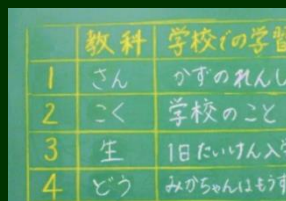 教科 学校での学習
1 さん かずのれんし
2 こく 学校のこと
3 生 1日たいけん入学
4 どう みかちゃんはもうす